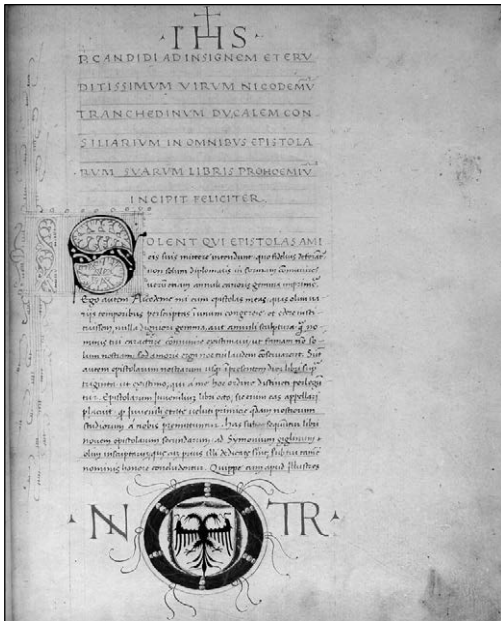 ·IHS·
P. CANDIDI AD INSIGNEM ET ERV
DITISSIMUM VIRUM NICODEMŪ
TRANCHEDINUM DVCALEM CON
SILIARIUM IN OMNIBUS EPISTOLA
RUM SVARUM LIBRIS PROHOEMIŪ
INCIPIT FELICITER.
SOLENT QVI EPISTOLAS AMI
cis suis mittere intendunt, quo fidelius deferāt
non solum diplomate
verū etiam annuli gemma imprime
Ego autem Nicodeme mi cum epistolas meas, quas olim va
rijs temporibus perscriptas in unum congerere, et edere insti
tuissem, nulla digniori gemma, aut annuli sculptura, q̄ no
minis tui communire existimavi, ut famam nō so
lum nostram, sed amoris erga nos tui laudem observarent. Sunt
autem epistolarum nostrarum usq̄ in presentem diem libri
triginta ut existimo, qui a me hoc ordine distincti perlegū
tur. Epistolarum Juvenilium libri octo, sic enim eas appellari
placuit, q̄ Juvenili etate veluti primicie q̄dam nostrorum
studiorum a nobis premittuntur. has subsequūtur libri
novem epistolarum secundarum, ad
olim inscriptarum, que
nominis honore concluduntur. Quippe cum apud Illustres
·N TR·